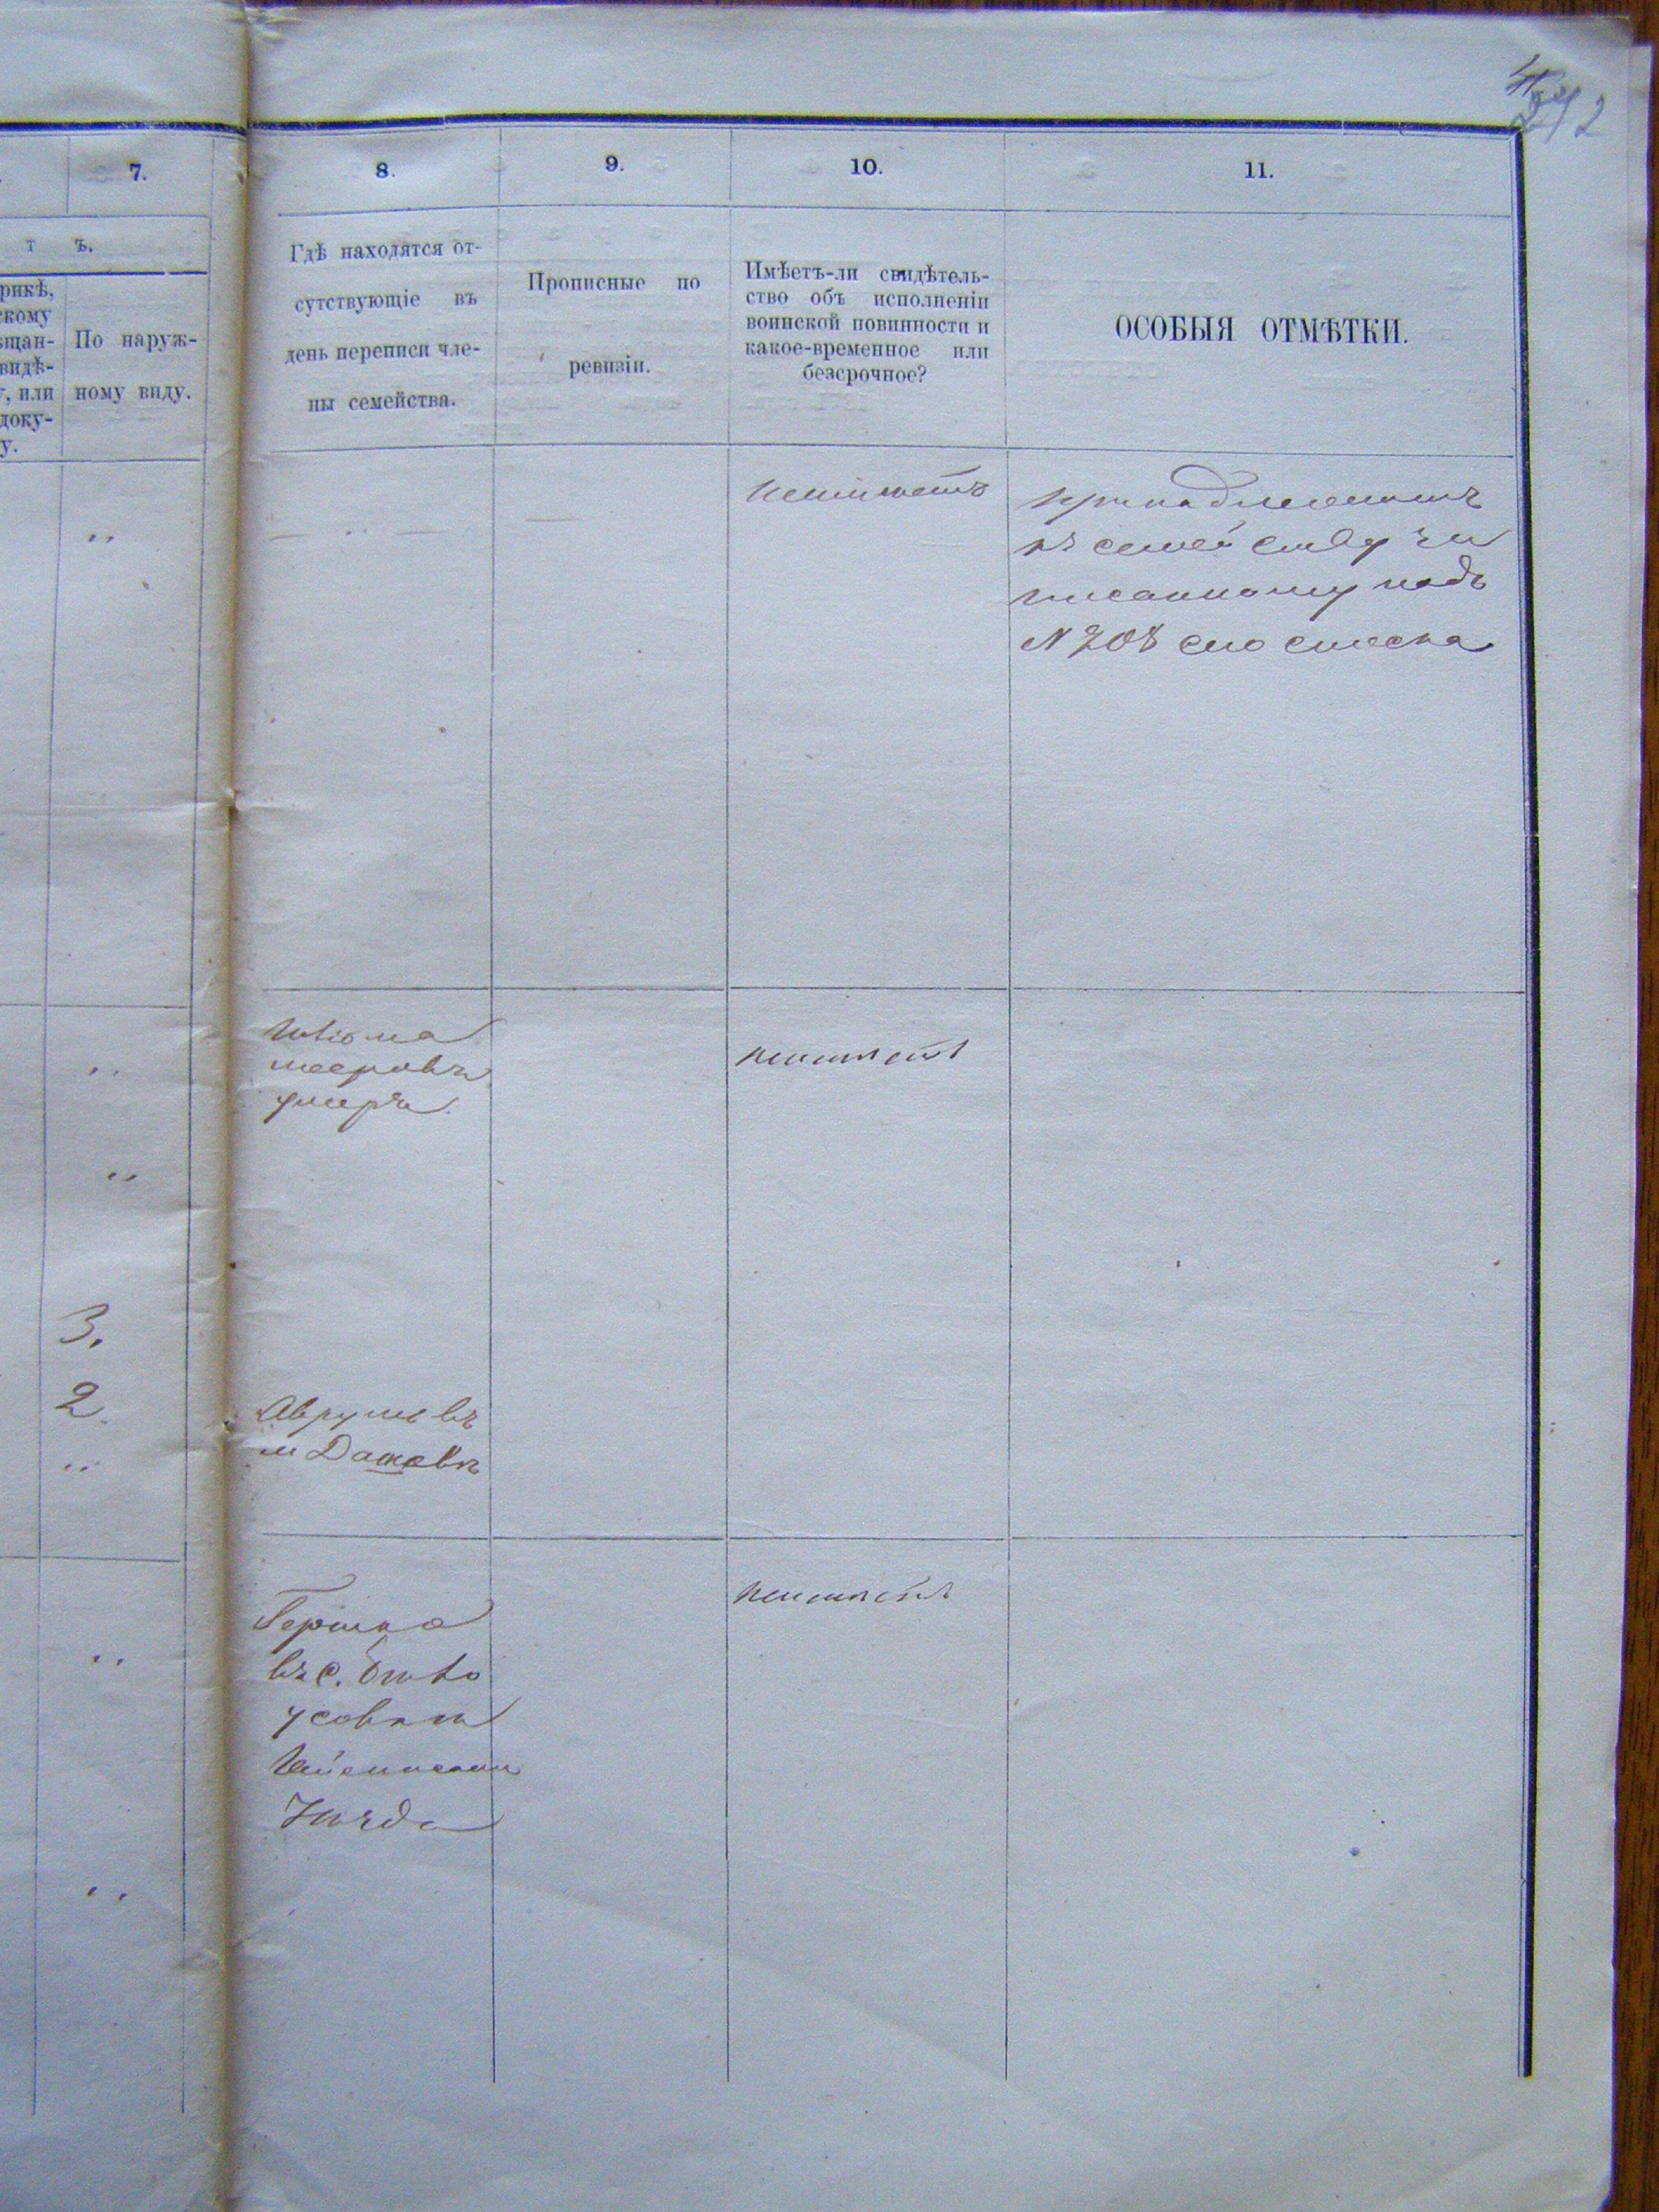 7.
8.
9.
10.
11.
т ъ.
рикѣ,
скому
ѣщан-
видѣ-
у, или
доку-
у.
По наруж-
ному виду.
Гдѣ находятся от-
сутствующіе въ
день переписи чле-
ны семейства.
Прописные по
ревизіи.
Имѣетъ-ли свидѣтель-
ство объ исполненіи
воинской повинности и
какое-временное или
безсрочное?
ОСОБЫЯ ОТМѢТКИ.
неимѣетъ
принадлежитъ
къ семейству
писанному подъ
N 208 списка
умеръ
неимѣетъ
3.
2
Аврумъ въ
м Дашевъ
Гершко
въ с.
неимѣетъ